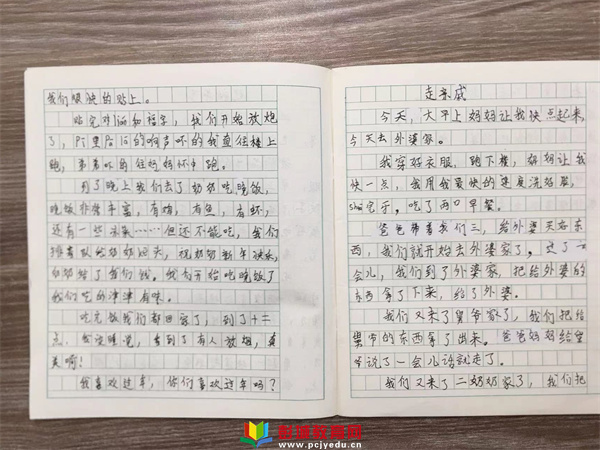 我们很快的贴上。
贴完对lián和福字，我们开始放炮
了，pī里pā lā的响声吓的我直往楼上
跑，弟弟吓的往妈妈怀中跑。
到了晚上我们去了奶奶吃晚饭，
晚饭非常丰富，有鸡，有鱼，有虾，
还有一些凉菜……但还不能吃，我们
排着队给奶奶
奶奶给了我们钱。我们开始吃晚饭了
我们吃的津津有味。
吃完饭我们都回家了，到了十二
点，我没睡觉，看到了有人放烟，真
美啊！
我喜欢过年，你们喜欢过年吗？
走亲戚
今天，大早上妈妈让我快点起来，
今天去外婆家。
我穿好衣服，跑下楼，妈妈让我
快一点，我用我最快的速度洗好脸，
shuā完牙。吃了两口早餐。
爸爸带着我们三，给外婆买后东
西，我们就开始去外婆家了。过了一
会儿，我们到了外婆家，把给外婆的
东西拿了下来，给了外婆。
我们又来了舅爷家了，我们把给
舅爷的东西拿了出来。爸爸妈妈给舅
爷说了一会儿话就走了。
我们又来了二奶奶家了，我们把
彭湃教育网
www.pcjyedu.cn